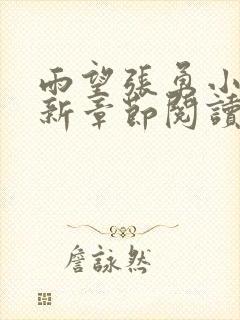 雨望張勇小
新章節閱讀
詹詠然